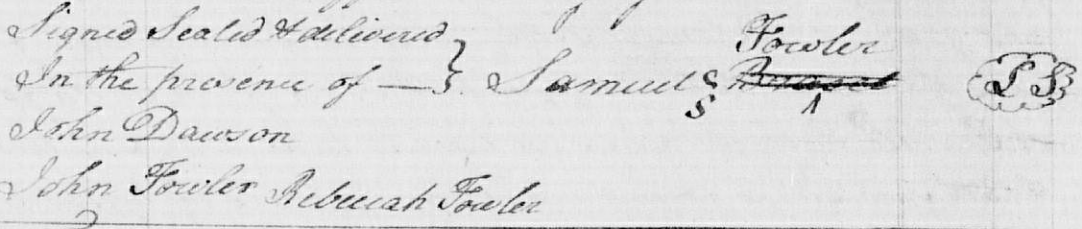 Signed Sealed & delivered
In the presence of — Samuel Fowler L S
John Dawson
John Fowler Rebeccah Fowler